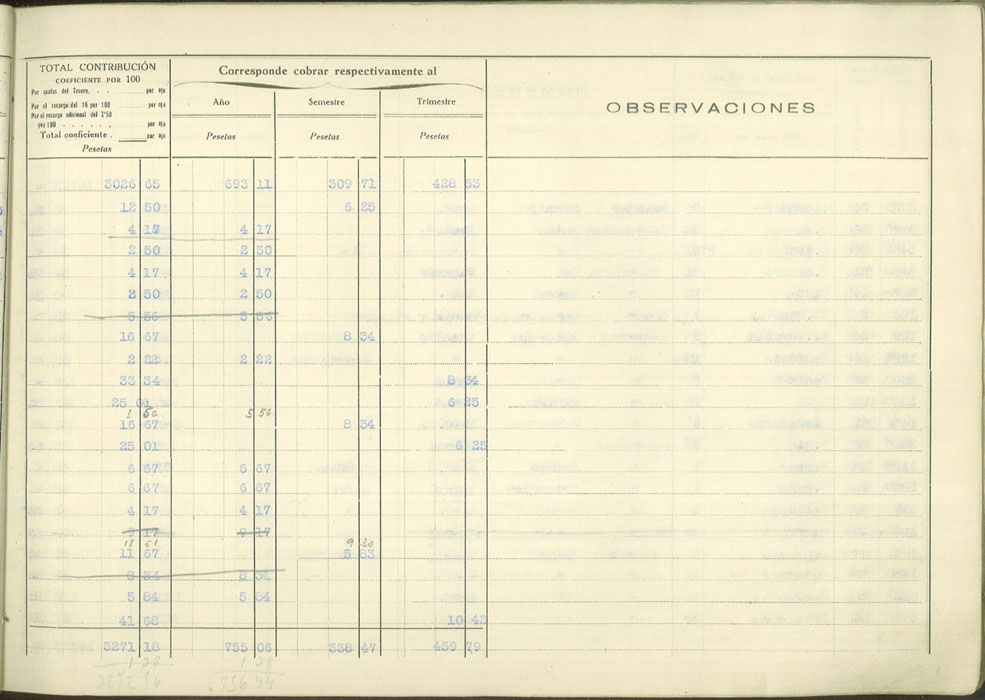 TOTAL CONTRIBUCIÓN
COEFICIENTE POR 100
Por cuotas del Tesoro. . . por ojo
Por el recargo del 16 por 100 por ojo
Por el recargo adicional del 2'50
por 100 . . . . . . por ojo
Total coeficiente . por ojo
Pesetas
Corresponde cobrar respectivamente al
Año Semestre Trimestre
Pesetas Pesetas Pesetas
OBSERVACIONES
3026 65 693 11 309 71 428 53
12 50 6 25
4 17 4 17
2 50 2 50
4 17 4 17
2 50 2 50
5 56 5 56
16 67 8 34
2 22 2 22
33 34 8 34
25 01 6 25
5 56
16 67 8 34
25 01 6 25
6 67 6 67
6 67 6 67
4 17 4 17
9 17 9 17
18 61 9 20
11 67 5 83
8 34 8 34
5 84 5 84
41 68 10 42
3271 18 755 06 338 47 459 79
1 38
3272 56 756 44